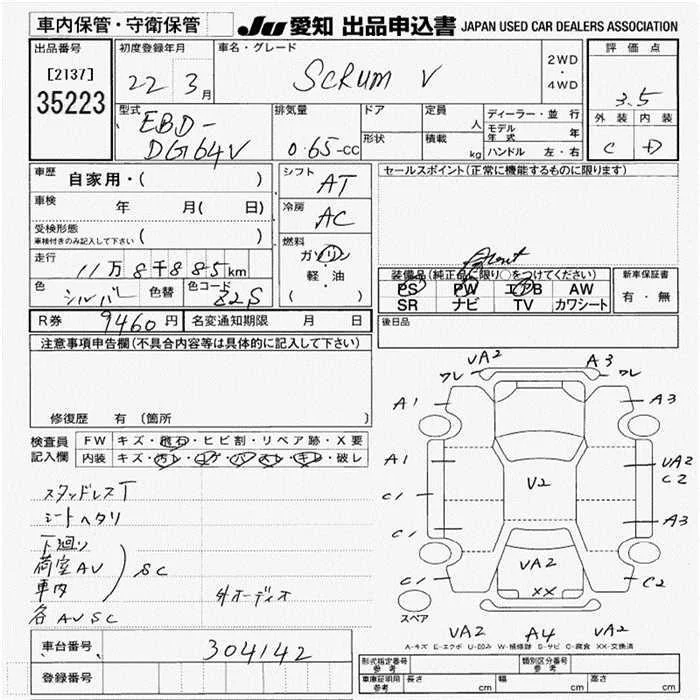 車内保管・守衛保管
JU 愛知 出品申込書 JAPAN USED CAR DEALERS ASSOCIATION
出品番号
[2137]
35223
初度登録年月
22 3月
車名・グレード
SCRUM V
2WD
・
4WD
評価点
3.5
外装 内装
C D
型式
EBD-
DG64V
排気量
0.65-cc
ドア
形状
定員
人
積載
kg
ディーラー・並行
モデル年式 年
ハンドル 左・右
車歴
自家用・( )
車検
年 月( 日)
受検形態
車検付きのみ記入して下さい ( )
走行
11万8千885km
色 シルバー 色替 色コード Z2S
シフト AT
冷房 AC
燃料
ガソリン
軽・油
( )
セールスポイント(正常に機能するものに限ります)
Front
装備品(純正品に限り○をつけてください)
PS PW エアB AW
SR ナビ TV カワシート
新車保証書
有・無
R券 9460円 名変通知期限 月 日
後日品
注意事項申告欄(不具合内容等は具体的に記入して下さい)
修復歴 有(箇所 )
検査員
記入欄
FW キズ・飛石・ヒビ割・リペア跡・X要
内装 キズ・汚レ・コゲ・ハズレ・キレ・破レ
スタッドレスT
シートヘタリ
下廻リ
荷室AV
車内
SC
各AVSC
外オーディオ
VA2
ワレ
A3
ワレ
A1
A3
A1
V2
VA2
C2
C1
C1
A3
VA2
C1
XX
C2
スペア
VA2 A4 VA2
A-キズ E-エクボ U-凹み W-補修跡 S-サビ C-腐食 XX-交換済
車台番号 304142
登録番号
形式指定番号
参考
類別区分番号
参考
車庫証明用
参考
長さ cm 幅 cm 高さ cm